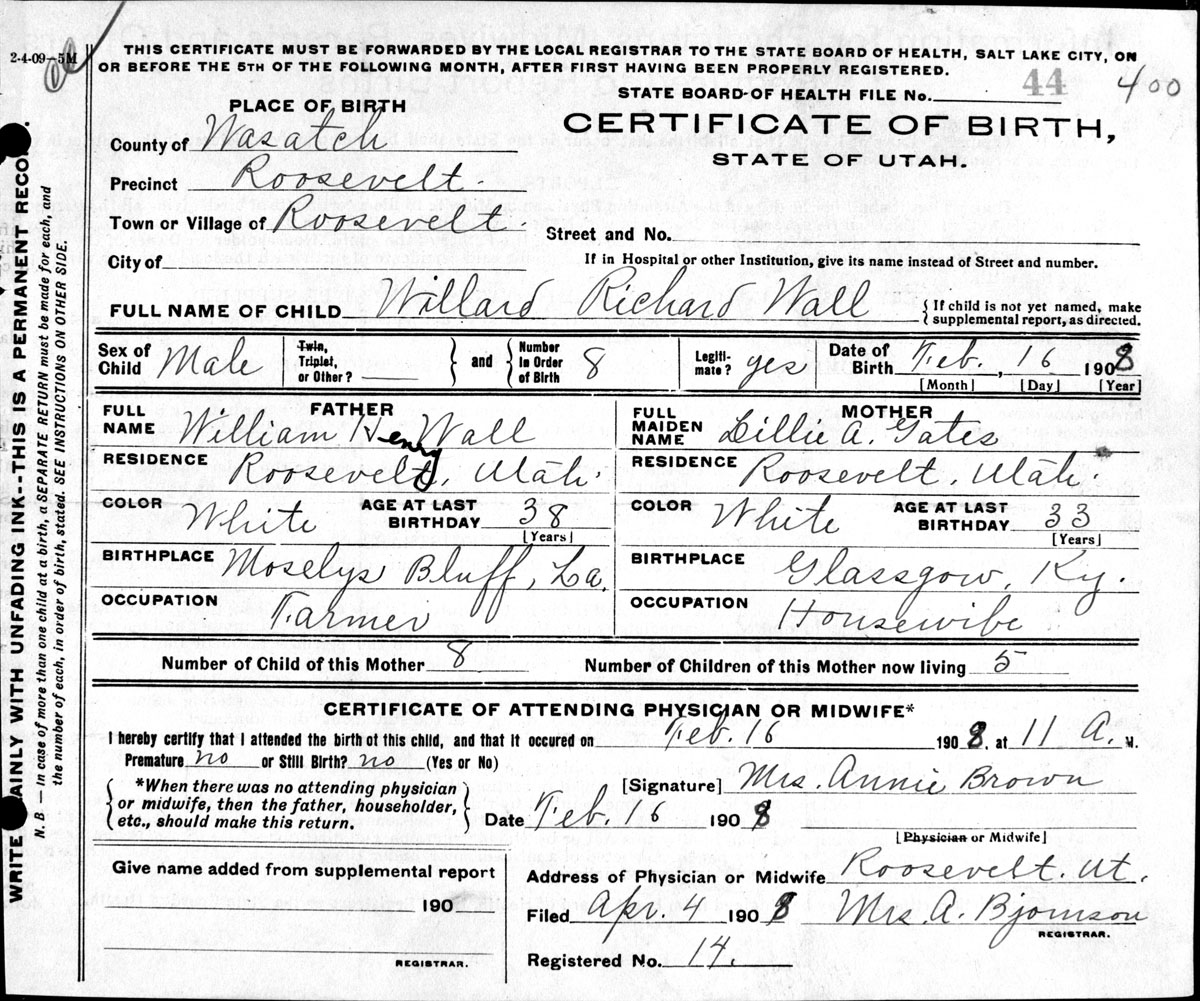 2-4-09-5M
THIS CERTIFICATE MUST BE FORWARDED BY THE LOCAL REGISTRAR TO THE STATE BOARD OF HEALTH, SALT LAKE CITY, ON
OR BEFORE THE 5TH OF THE FOLLOWING MONTH, AFTER FIRST HAVING BEEN PROPERLY REGISTERED.
STATE BOARD OF HEALTH FILE No. 44 400
PLACE OF BIRTH
CERTIFICATE OF BIRTH,
STATE OF UTAH.
County of Wasatch
Precinct Roosevelt.
Town or Village of Roosevelt.
Street and No.
City of
If in Hospital or other Institution, give its name instead of Street and number.
FULL NAME OF CHILD Willard Richard Wall { If child is not yet named, make supplemental report, as directed.
Sex of Child Male Twin, Triplet, or Other? and Number In Order of Birth 8 Legiti-mate? yes Date of Birth Feb., 16 1908
[Month] [Day] [Year]
FATHER
FULL NAME William Henry Wall
RESIDENCE Roosevelt, Utah.
COLOR White AGE AT LAST BIRTHDAY 38
[Years]
BIRTHPLACE Moselys Bluff, La.
OCCUPATION Farmer
MOTHER
FULL MAIDEN NAME Lillie A. Gates
RESIDENCE Roosevelt, Utah.
COLOR White AGE AT LAST BIRTHDAY 33
[Years]
BIRTHPLACE Glassgow, Ky.
OCCUPATION Housewife
Number of Child of this Mother 8 Number of Children of this Mother now living 5
CERTIFICATE OF ATTENDING PHYSICIAN OR MIDWIFE*
I hereby certify that I attended the birth of this child, and that it occured on Feb. 16 1908, at 11 A. M.
Premature no or Still Birth? no (Yes or No)
*When there was no attending physician
or midwife, then the father, householder,
etc., should make this return.
[Signature] Mrs. Annie Brown
Date Feb. 16 1908
[Physician or Midwife]
Give name added from supplemental report
190
REGISTRAR.
Address of Physician or Midwife Roosevelt. Ut.
Filed Apr. 4 1908 Mrs. A. Bjornson
REGISTRAR.
Registered No. 14.
WRITE AINLY WITH UNFADING INK--THIS IS A PERMANENT RECO .
N. B — In case of more than one child at a birth, a SEPARATE RETURN must be made for each, and
the number of each, in order of birth, stated. SEE INSTRUCTIONS ON OTHER SIDE.